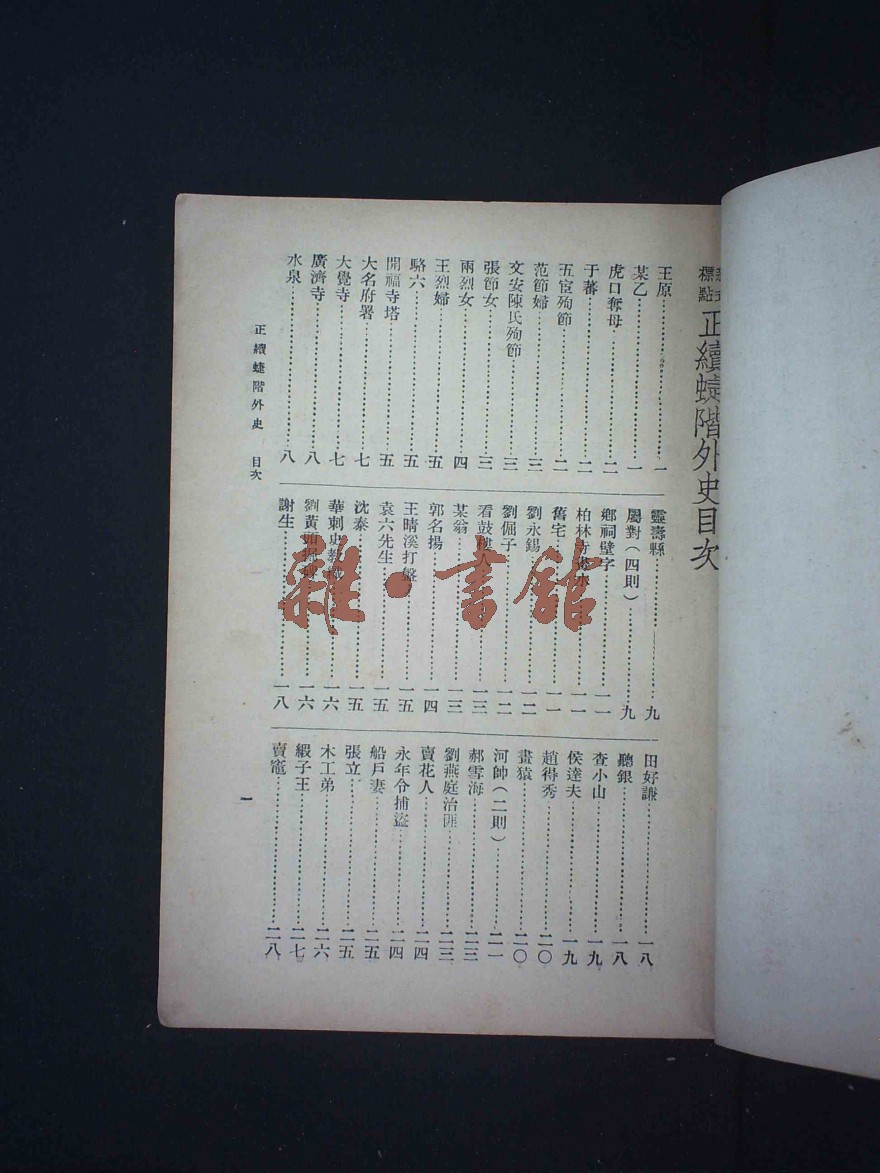 標點 正續蜨階外史目次
王原……一
某乙……一
虎口奪母……二
于蕃……二
五宦殉節……二
范節婦……三
文安陳氏殉節……三
張節女……三
兩烈女……四
王烈婦……五
駱六……五
開福寺塔……五
大名府署……七
大覺寺……七
廣濟寺……八
水泉……八
靈壽縣……九
屬對(四則)……九
鄉祠壁字……一一
柏林寺畫水……一一
舊宅……一一
劉永錫……一二
劉倔子……一二
看鼓樓人……一三
某翁……一三
郭名揚……一四
王晴溪打盤……一五
袁六先生……一五
沈泰……一五
華刺史教……一六
劉黃頭……一六
謝生……一八
田好謙……一八
聽銀……一八
查小山……一九
侯達夫……一九
趙得秀……二〇
畫猿……二〇
河帥(二則)……二一
郝雪海……二三
劉燕庭治匪……二三
賣花人……二四
永年令捕盜……二四
船戶妻……二五
張立……二五
木工弟……二六
緞子王……二七
賣竈……二八
正續蜨階外史 目次
一
雜·書館